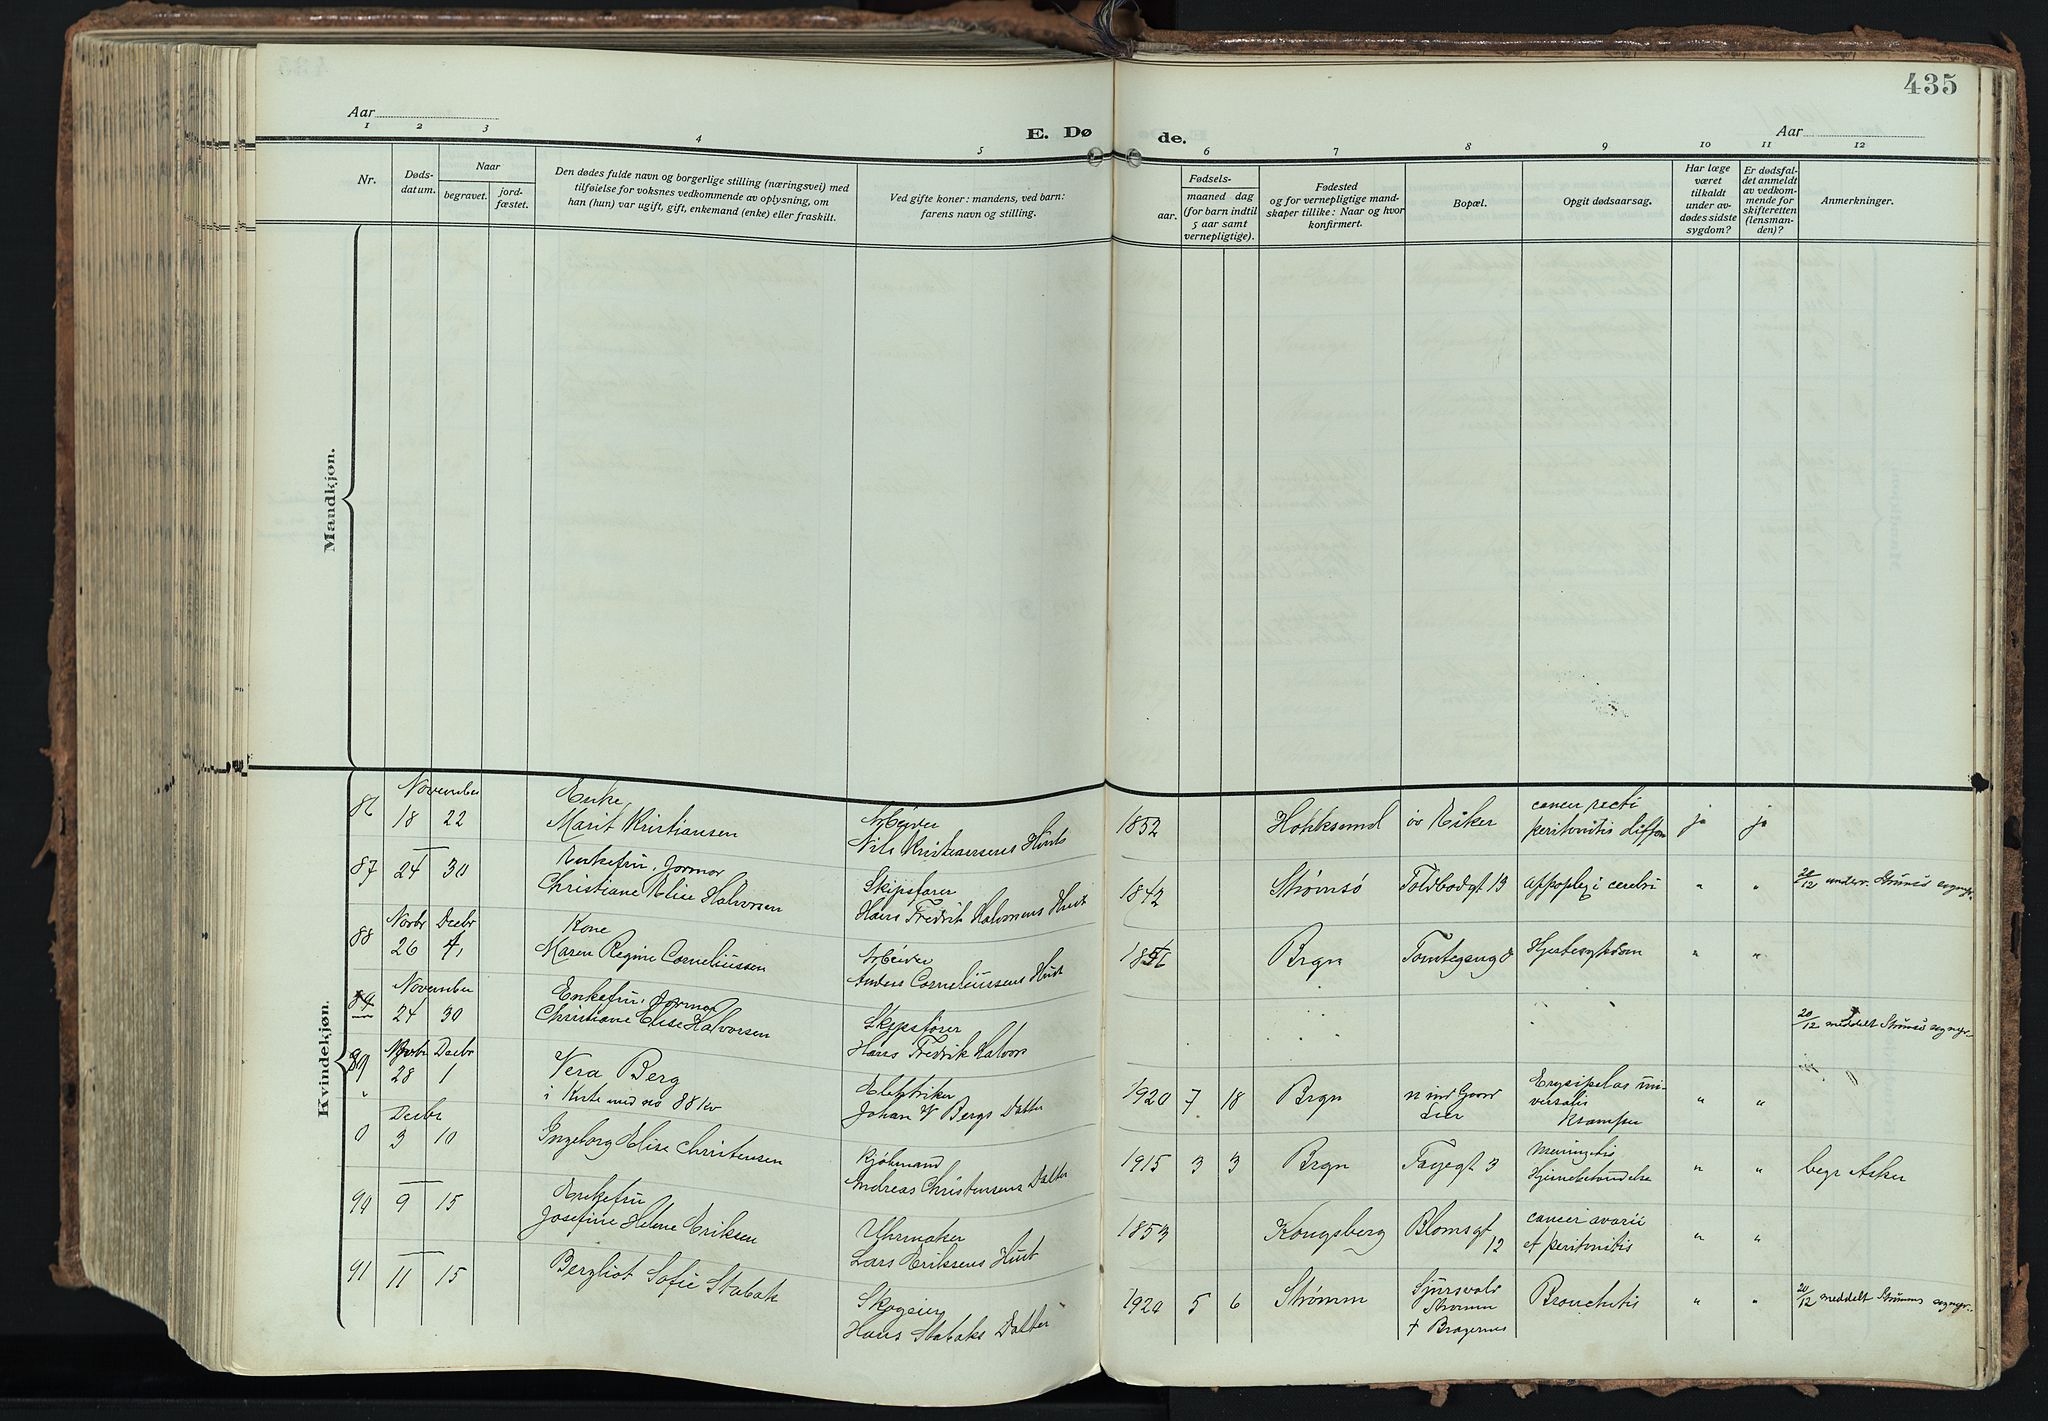 435
Aar
E. Dø
de.
Aar
1 2 3 4 5 6 7 8 9 10 11 12
Nr.
Døds-
datum.
Naar
begravet.
jord-
fæstet.
Den dødes fulde navn og borgerlige stilling (næringsvei) med
tilføielse for voksnes vedkommende av oplysning, om
han (hun) var ugift, gift, enkemand (enke) eller fraskilt.
Ved gifte koner: mandens, ved barn:
farens navn og stilling.
Fødsels-
aar.
maaned dag
(for barn indtil
5 aar samt
vernepligtige).
Fødested
og for vernepligtige mand-
skaper tillike: Naar og hvor
konfirmert.
Bopæl.
Opgit dødsaarsag.
Har læge
været
tilkaldt
under av-
dødes sidste
sygdom?
Er dødsfal-
det anmeldt
av vedkom-
mende for
skifteretten
(lensman-
den)?
Anmerkninger.
Mandkjøn.
Kvindekjøn.
November Enke Arbeider cancer recti
86 18 22 Marit Kristiansen Nils Kristiansens 1852 Hokksund øv Eiker peritonitis ja ja
Enkefru, Jormor Skipsfører
87 24 30 Christiane Elise Halvorsen Hans Fredrik 1842 Strømsø Toldbodgt 13 appoplexi cerebri " " 20/12 underr. Strømsø sognepr.
Novbr Decbr Kone Arbeider
88 26 4 Maren Regine Corneliussen Anders Corneliussens Brgn Hjertesygdom " "
November Enkefru, Jormor Skipsfører
24 30 Christiane Elise Halvorsen Hans Fredrik Halvors 20/12 meddelt Strømsø sognepr.
Novbr Decbr Elektriker Erysipelas uni-
89 28 1 Vera Berg Johan Bergs Datter 1920 7 18 Brgn versalis " "
" i Kiste med no 88 Kv Krampe
Decbr Kjøbmand Meningitis
0 3 10 Ingeborg Elise Christensen Andreas Christensens Datter 1915 3 3 Brgn Fayegt 3 Hjernebetændelse " " begr Asker
Enkefru Uhrmaker cancer ovarii
90 9 15 Josefine Helene Eriksen Lars Eriksens 1853 Kongsberg Blomsgt 12 et peritonitis " "
Skogeier
91 11 15 Bergliot Sofie Stabæk Hans Stabæks Datter 1920 5 6 Strømm Sjursvold Bronchitis " " 20/12 meddelt Strømms sognepr.
Strømm
† Bragernes